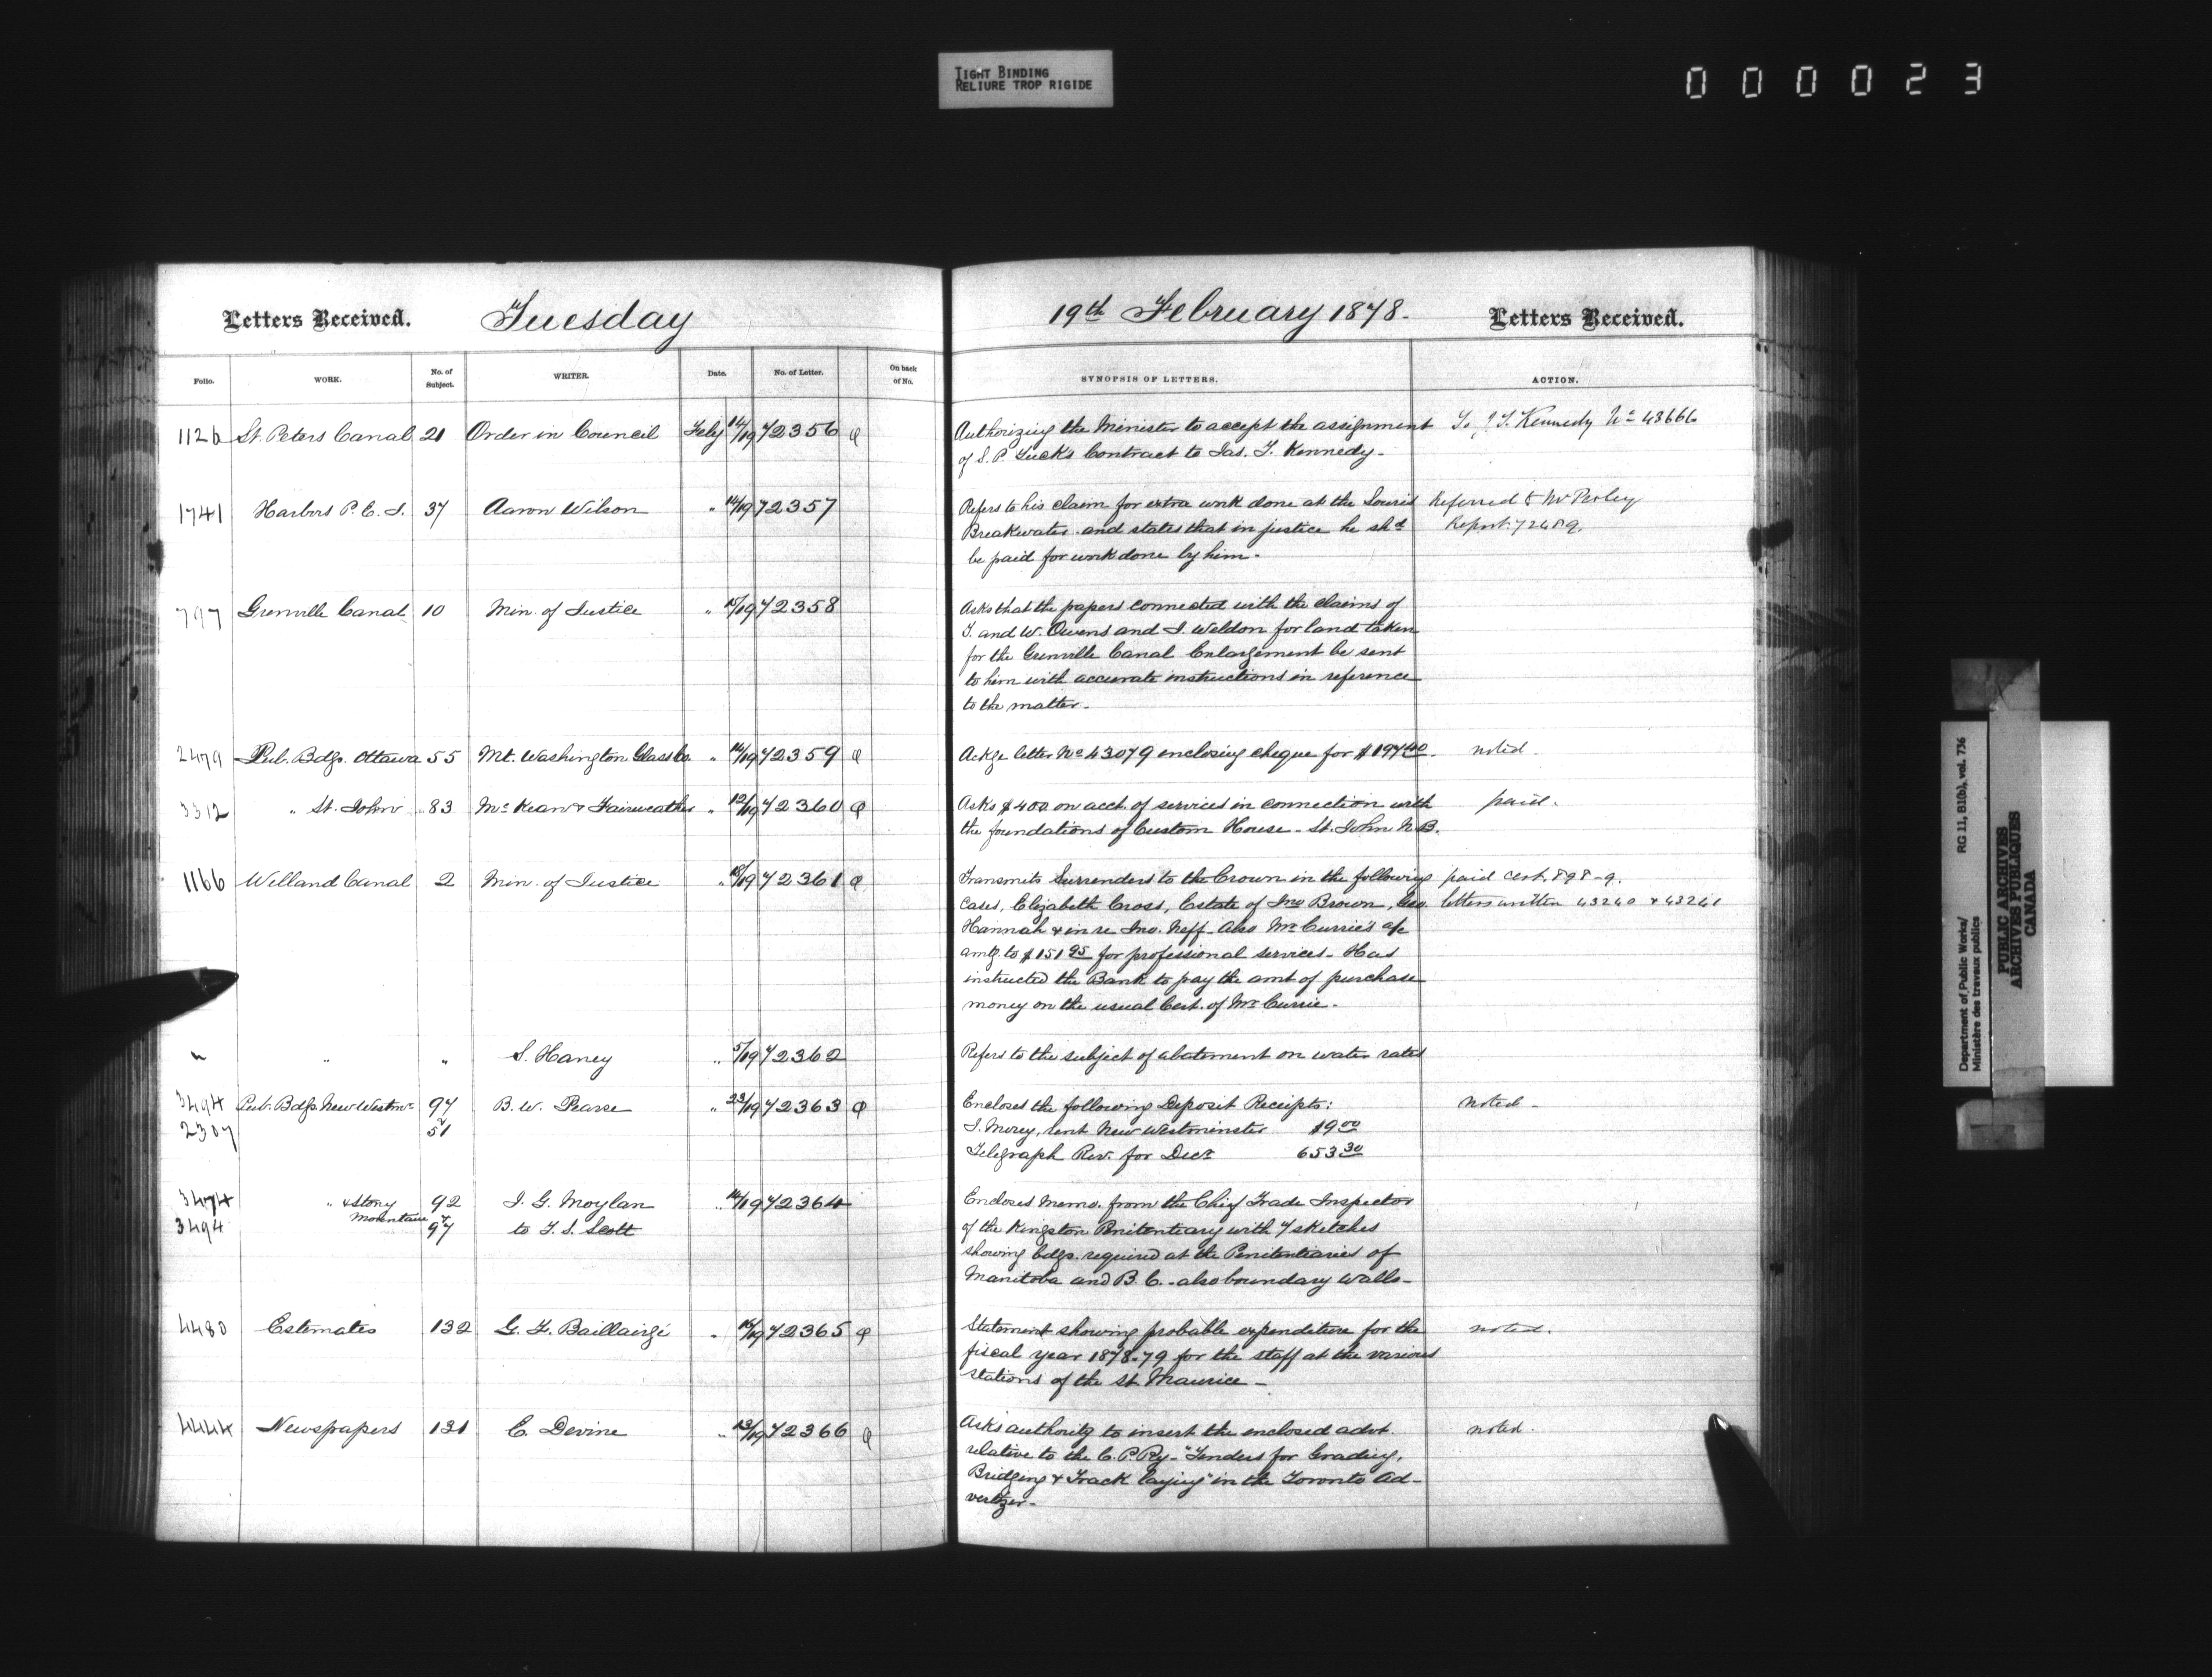 TIGHT BINDING
RELIURE TROP RIGIDE
000023
Letters Received. Tuesday 19th February 1878. Letters Received.
Folio. WORK. No. of Subject. WRITER. Date. No. of Letter. On back of No. SYNOPSIS OF LETTERS. ACTION.
1126 St. Peters Canal 21 Order in Council Feby 14/19 72356 Authorizing the Minister to accept the assignment To J. T. Kennedy No 43666
of S. P. Tuck's Contract to Jas. T. Kennedy -
1741 Harbors P. E. I. 37 Aaron Wilson " 14/19 72357 Refers to his claim for extra work done at the Souris Referred to Mr Perley
Breakwater and states that in justice he shd Report. 72489.
be paid for work done by him -
797 Grenville Canal 10 Min. of Justice " 15/19 72358 Asks that the papers connected with the claims of
T. and W. Owens and J. Weldon for land taken
for the Grenville Canal Enlargement be sent
to him with accurate instructions in reference
to the matter -
2479 Pub. Bdgs. Ottawa 55 Mt. Washington Glass Co. " 14/19 72359 Ackge letter No 43079 enclosing cheque for $197.40. noted.
3312 " St. John 83 McKean & Fairweather " 12/19 72360 Asks $400 on acct. of services in connection with paid.
the foundations of Custom House - St. John N.B.
1166 Welland Canal 2 Min. of Justice " 18/19 72361 Transmits Surrenders to the Crown in the following paid cert. 898-9.
cases, Elizabeth Cross, Estate of Jno Brown, Geo. letters written 43240 & 43241
Hannah & in re Jno. Neff. Also Mr Currie's a/c
amtg. to $151.95 for professional services - Has
instructed the Bank to pay the amt of purchase
money on the usual Cert. of Mr Currie -
" " " S. Haney " 5/19 72362 Refers to the subject of abatement on water rates
3494 Pub. Bdgs. New Westmr 97 B. W. Pearse " 23/19 72363 Encloses the following Deposit Receipts: noted -
2307 & 51 J. Morey, rent New Westminster $9.00
Telegraph Rev. for Decr 653.30
3474 " & Stony 92 J. G. Moylan " 14/19 72364 Encloses Memo. from the Chief Trade Inspector
3494 Mountain & 97 to T. S. Scott of the Kingston Penitentiary with 7 sketches
showing bdgs. required at the Penitentiaries of
Manitoba and B. C. - also boundary walls -
4480 Estimates 132 G. F. Baillairgé " 16/19 72365 Statement showing probable expenditure for the noted.
fiscal year 1878-79 for the staff at the various
stations of the St. Maurice -
4444 Newspapers 131 E. Devine " 13/19 72366 Asks authority to insert the enclosed advt. noted.
relative to the C. P. Ry - "Tenders for Grading,
Bridging & Track laying" in the Toronto Ad-
vertizer -
Department of Public Works/ RG 11, B1(b), vol. 736
Ministère des travaux publics
PUBLIC ARCHIVES
ARCHIVES PUBLIQUES
CANADA